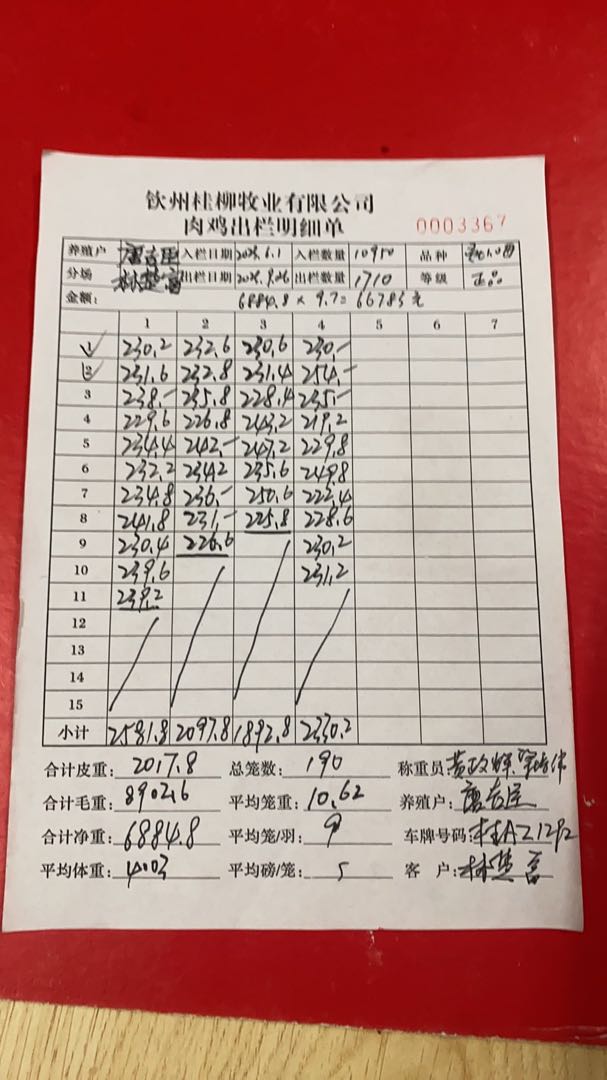 钦州桂柳牧业有限公司
肉鸡出栏明细单
0003367
养殖户 入栏日期 入栏数量 10950 品种
分场 林楚富 出栏日期 出栏数量 1710 等级 正品
金额: 6884.8 × 9.7= 66783元
1 2 3 4 5 6 7
1 230.2 232.6 230.6 230.-
2 231.6 232.8 231.4 254.-
3 238.- 235.8 228.4 235.-
4 229.6 226.8 243.2 219.2
5 234.4 242.- 247.2 229.8
6 232.2 234.2 235.6 249.8
7 234.8 236.- 250.6 222.4
8 241.8 231.- 225.8 228.6
9 230.4 226.6 230.2
10 239.6 231.2
11 239.2
12
13
14
15
小计 2581.8 2097.8 1892.8 2330.2
合计皮重: 2017.8 总笼数: 190 称重员
合计毛重: 8902.6 平均笼重: 10.62 养殖户:
合计净重: 6884.8 平均笼/羽: 9 车牌号码: 桂AZ1292
平均体重: 4.03 平均磅/笼: 5 客 户: 林楚富